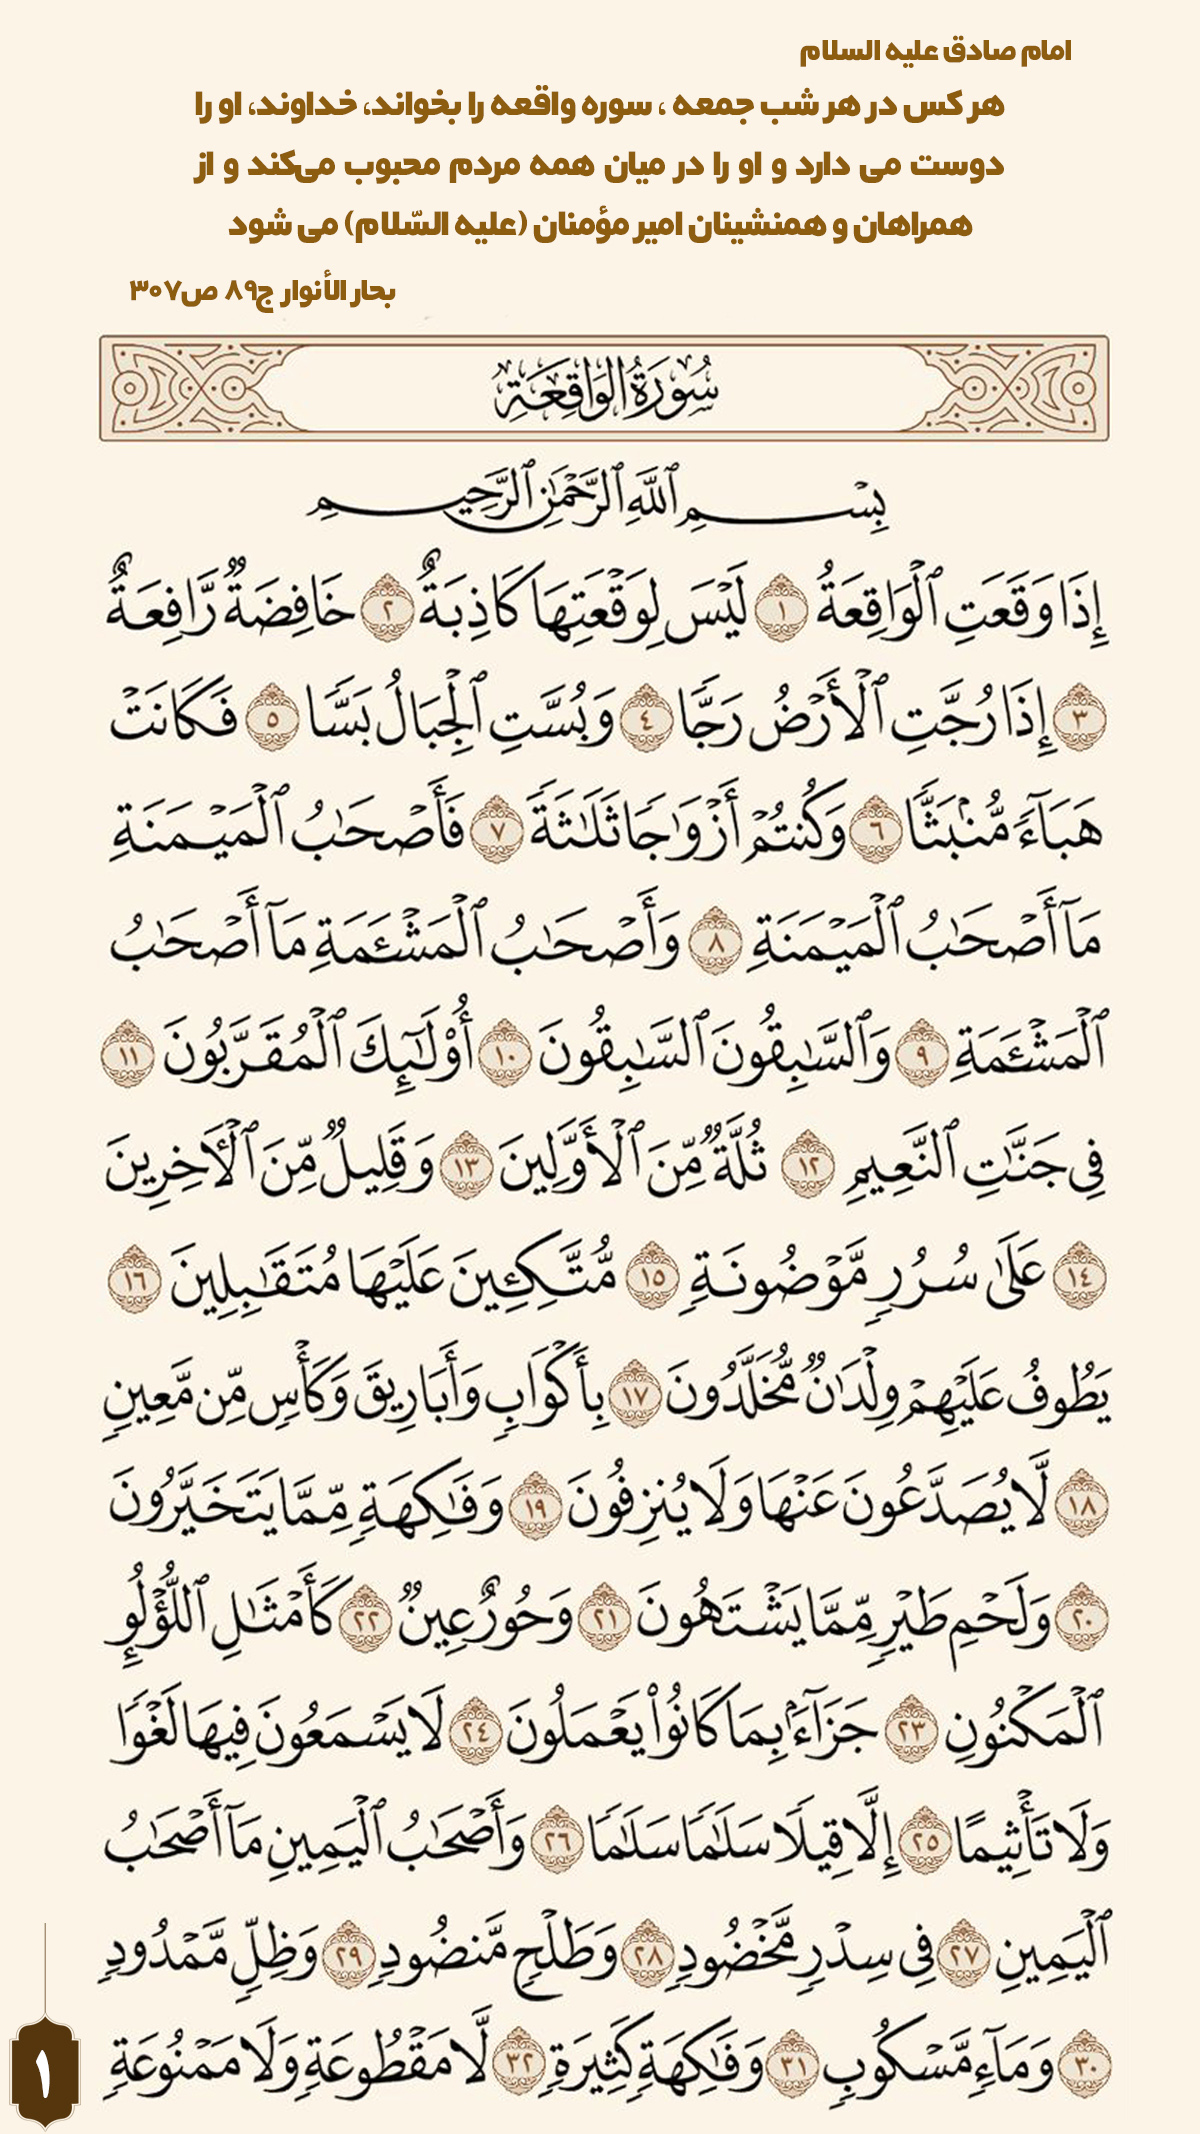 امام صادق علیه السلام
هر کس در هر شب جمعه ، سوره واقعه را بخواند، خداوند، او را
دوست می دارد و او را در میان همه مردم محبوب می‌کند و از
همراهان و همنشینان امیر مؤمنان (علیه السّلام) می شود
بحار الأنوار ج۸۹ ص۳۰۷
سُورَةُ الوَاقِعَةِ
بِسْمِ ٱللَّهِ ٱلرَّحْمَٰنِ ٱلرَّحِيمِ
إِذَا وَقَعَتِ ٱلْوَاقِعَةُ ١ لَيْسَ لِوَقْعَتِهَا كَاذِبَةٌ ٢ خَافِضَةٌ رَّافِعَةٌ
٣ إِذَا رُجَّتِ ٱلْأَرْضُ رَجًّا ٤ وَبُسَّتِ ٱلْجِبَالُ بَسًّا ٥ فَكَانَتْ
هَبَآءً مُّنۢبَثًّا ٦ وَكُنتُمْ أَزْوَٰجًا ثَلَٰثَةً ٧ فَأَصْحَٰبُ ٱلْمَيْمَنَةِ
مَآ أَصْحَٰبُ ٱلْمَيْمَنَةِ ٨ وَأَصْحَٰبُ ٱلْمَشْـَٔمَةِ مَآ أَصْحَٰبُ
ٱلْمَشْـَٔمَةِ ٩ وَٱلسَّٰبِقُونَ ٱلسَّٰبِقُونَ ١٠ أُو۟لَٰٓئِكَ ٱلْمُقَرَّبُونَ ١١
فِى جَنَّٰتِ ٱلنَّعِيمِ ١٢ ثُلَّةٌ مِّنَ ٱلْأَوَّلِينَ ١٣ وَقَلِيلٌ مِّنَ ٱلْـَٔاخِرِينَ
١٤ عَلَىٰ سُرُرٍ مَّوْضُونَةٍ ١٥ مُّتَّكِـِٔينَ عَلَيْهَا مُتَقَٰبِلِينَ ١٦
يَطُوفُ عَلَيْهِمْ وِلْدَٰنٌ مُّخَلَّدُونَ ١٧ بِأَكْوَابٍ وَأَبَارِيقَ وَكَأْسٍ مِّن مَّعِينٍ
١٨ لَّا يُصَدَّعُونَ عَنْهَا وَلَا يُنزِفُونَ ١٩ وَفَٰكِهَةٍ مِّمَّا يَتَخَيَّرُونَ
٢٠ وَلَحْمِ طَيْرٍ مِّمَّا يَشْتَهُونَ ٢١ وَحُورٌ عِينٌ ٢٢ كَأَمْثَٰلِ ٱللُّؤْلُؤِ
ٱلْمَكْنُونِ ٢٣ جَزَآءًۢ بِمَا كَانُوا۟ يَعْمَلُونَ ٢٤ لَا يَسْمَعُونَ فِيهَا لَغْوًا
وَلَا تَأْثِيمًا ٢٥ إِلَّا قِيلًا سَلَٰمًا سَلَٰمًا ٢٦ وَأَصْحَٰبُ ٱلْيَمِينِ مَآ أَصْحَٰبُ
ٱلْيَمِينِ ٢٧ فِى سِدْرٍ مَّخْضُودٍ ٢٨ وَطَلْحٍ مَّنضُودٍ ٢٩ وَظِلٍّ مَّمْدُودٍ
٣٠ وَمَآءٍ مَّسْكُوبٍ ٣١ وَفَٰكِهَةٍ كَثِيرَةٍ ٣٢ لَّا مَقْطُوعَةٍ وَلَا مَمْنُوعَةٍ
۱